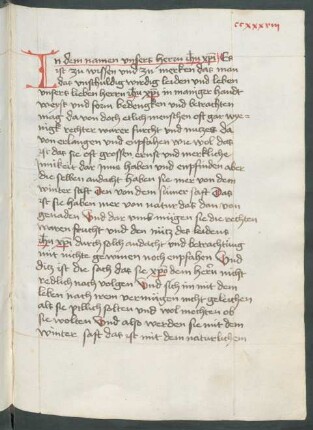 ccxxxviii
In dem namen unsers herrn ihu xpi Es
ist zu wissen und zu mercken das man
das unschuldig wirdig leiden und leben
unsers lieben herrn ihu xpi in maniger handt
weyß und form bedengken und betrachten
mag da von doch etlich menschen oft gar we-
nigk rechter warer frucht und nutzes da
von erlangen und enpfahen wie wol das
ist das sie oft grossen ernst und merkliche
innikeit dar inne haben und entpfinden aber
die selben andacht haben sie mer von dem
winter saft Den von dem sumer saft Das
ist sie haben mer von natur das dan von
genaden Und dar umb mügen sie die rechten
waren frucht und den nutz des leidens
ihu xpi durch solch andacht und betrachtung
mit nichte gewinen noch enpfahen Und
ditz ist die sach das sie xpo dem herrn nicht
redlich nach volgen Und sich im mit dem
leben nach irem vermügen nicht geleichen
als sie pillich solten und wol mochten ob
sie wolten Und also werden sie mit dem
winter saft das ist mit dem naturlichem